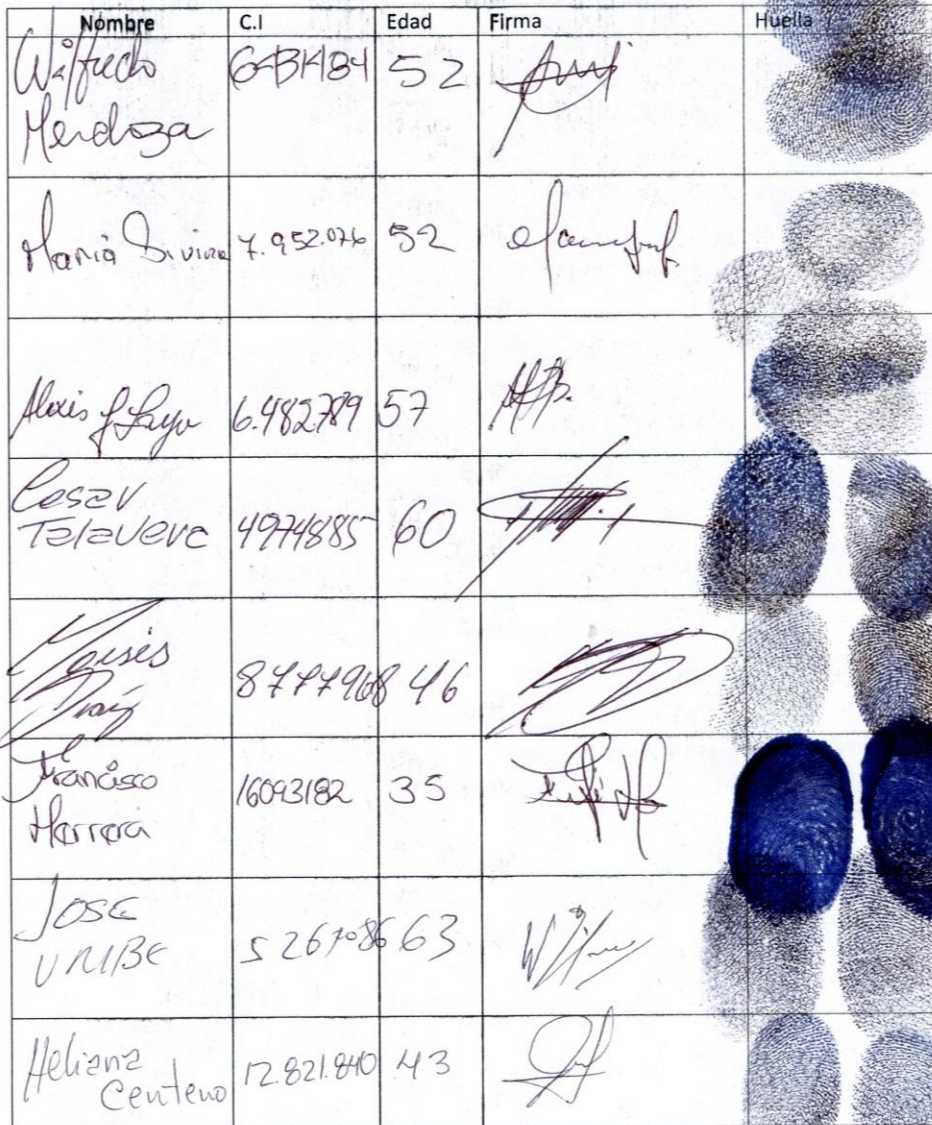 Nombre C.I Edad Firma Huella
Wilfredo
Mendoza 52
Maria Divina 7.952.076 52
Alexis 6.482789 57
Cesar
Talavera 4974885 60
Moisés
Díaz 8777968 46
Francisco
Herrera 16093182 35
JOSE
URIBE 63
Heliana
Centeno 12.821.840 43